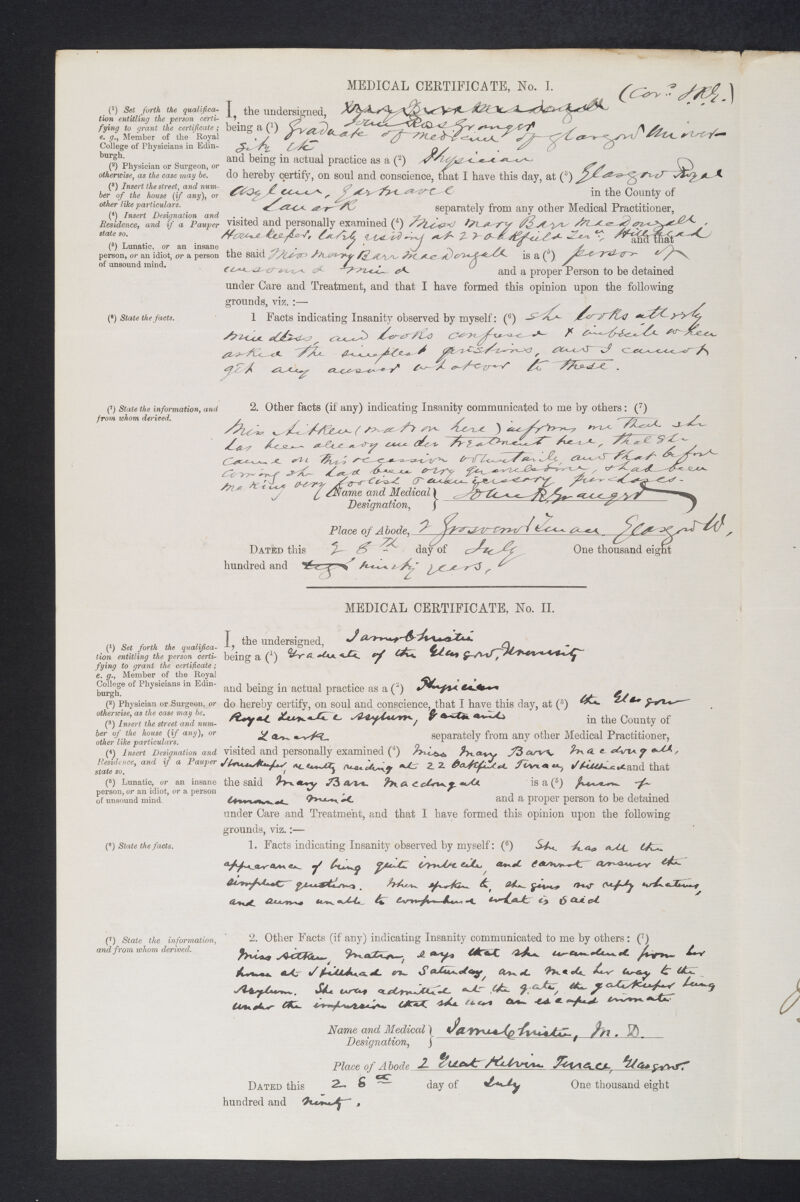 MEDICAL CERTIFICATE, No. I.
(Cor.d J.R.G.)
(1) Set forth the qualifica-
tion entitling the person certi-
fying to grant the certificate;
e. g., Member of the Royal
College of Physicians in Edin-
burgh.
(2) Physician or Surgeon, or
otherwise, as the case may be.
(3) Insert the street, and num-
ber of the house (if any), or
other like particulars.
(4) Insert Designation and
Residence, and if a Pauper
state so.
(5) Lunatic, or an insane
person, or an idiot, or a person
of unsound mind.
I, the undersigned, Mary Barr Macdougall
John Ross Granger
being a (1) Graduate of medicine of Glasgow Univer-
sity
and being in actual practice as a (2) Physician
do hereby certify, on soul and conscience, that I have this day, at (3) Glasgow Royal
Asylum, Gartnavel in the County of
Lanark separately from any other Medical Practitioner,
visited and personally examined (4) Miss Mary Barr Macdougall,
Housekeeper, lately residing at 22 Oakfield Terr., Hillhead and that
the said Miss Mary Barr Macdougall is a (5) person of
unsound mind and a proper Person to be detained
under Care and Treatment, and that I have formed this opinion upon the following
grounds, viz. :—
(6) State the facts.
1 Facts indicating Insanity observed by myself: (6) She looks utterly
mindless, and looks confused & imbecile when
asked the simplest questions, and I cannot
get any answer whatever to these.
(7) State the information, and
from whom derived.
2. Other facts (if any) indicating Insanity communicated to me by others: (7)
Miss Aitken (matron here) informs me that she
has been already under treatment here, that she
came on this occasion voluntarily and that before
coming she had been very quarrelsome, & had been
making very foolish & unnecessary purchases.
Name and Medical Designation, John R Granger
Place of Abode, 2 Grosvenor Terrace Glasgow W,
DATED this 28th day of July One thousand eight
hundred and ninety years,
MEDICAL CERTIFICATE, No. II.
(1) Set forth the qualifica-
tion entitling the person certi-
fying to grant the certificate;
e. g., Member of the Royal
College of Physicians in Edin-
burgh.
(2) Physician or Surgeon, or
otherwise, as the case may be.
(3) Insert the street and num-
ber of the house (if any), or
other like particulars.
(4) Insert Designation and
Residence, and if a Pauper
state so.
(5) Lunatic, or an insane
person, or an idiot, or a person
of unsound mind
I, the undersigned, James Christie
being a (1) Graduate of the Glasgow, University
and being in actual practice as a (2) Physician
do hereby certify, on soul and conscience, that I have this day, at (3) the Glasgow
Royal Lunatic Asylum, Gartnavel in the County of
Lanark separately from any other Medical Practitioner,
visited and personally examined (4) Miss Mary Barr Macdougall,
Housekeeper, recently residing at 22 Oakfield Terrace, Hillhead and that
the said Mary Barr Macdougall is a (5) person of
unsound mind and a proper person to be detained
under Care and Treatment, and that I have formed this opinion upon the following
grounds, viz. :—
(6) State the facts.
1. Facts indicating Insanity observed by myself: (6) She has all the
appearance of being quite imbecile, and cannot answer the
simplest questions. When spoken to, she gives no reply whatever,
and seems unable to comprehend what is said
(7) State the information,
and from whom derived.
2. Other Facts (if any) indicating Insanity communicated to me by others: (7)
Miss Aitken, Matron, says that she wandered from her
house at Hillhead on Saturday, and made her way to the
Asylum. She was admitted at the gate, the gatekeeper being
under the impression that she was an escaped inmate
Name and Medical Designation, James Christie, M. D.
Place of Abode 2 Great Kelvin Terrace, Glasgow.
DATED this 28th day of July One thousand eight
hundred and ninety.